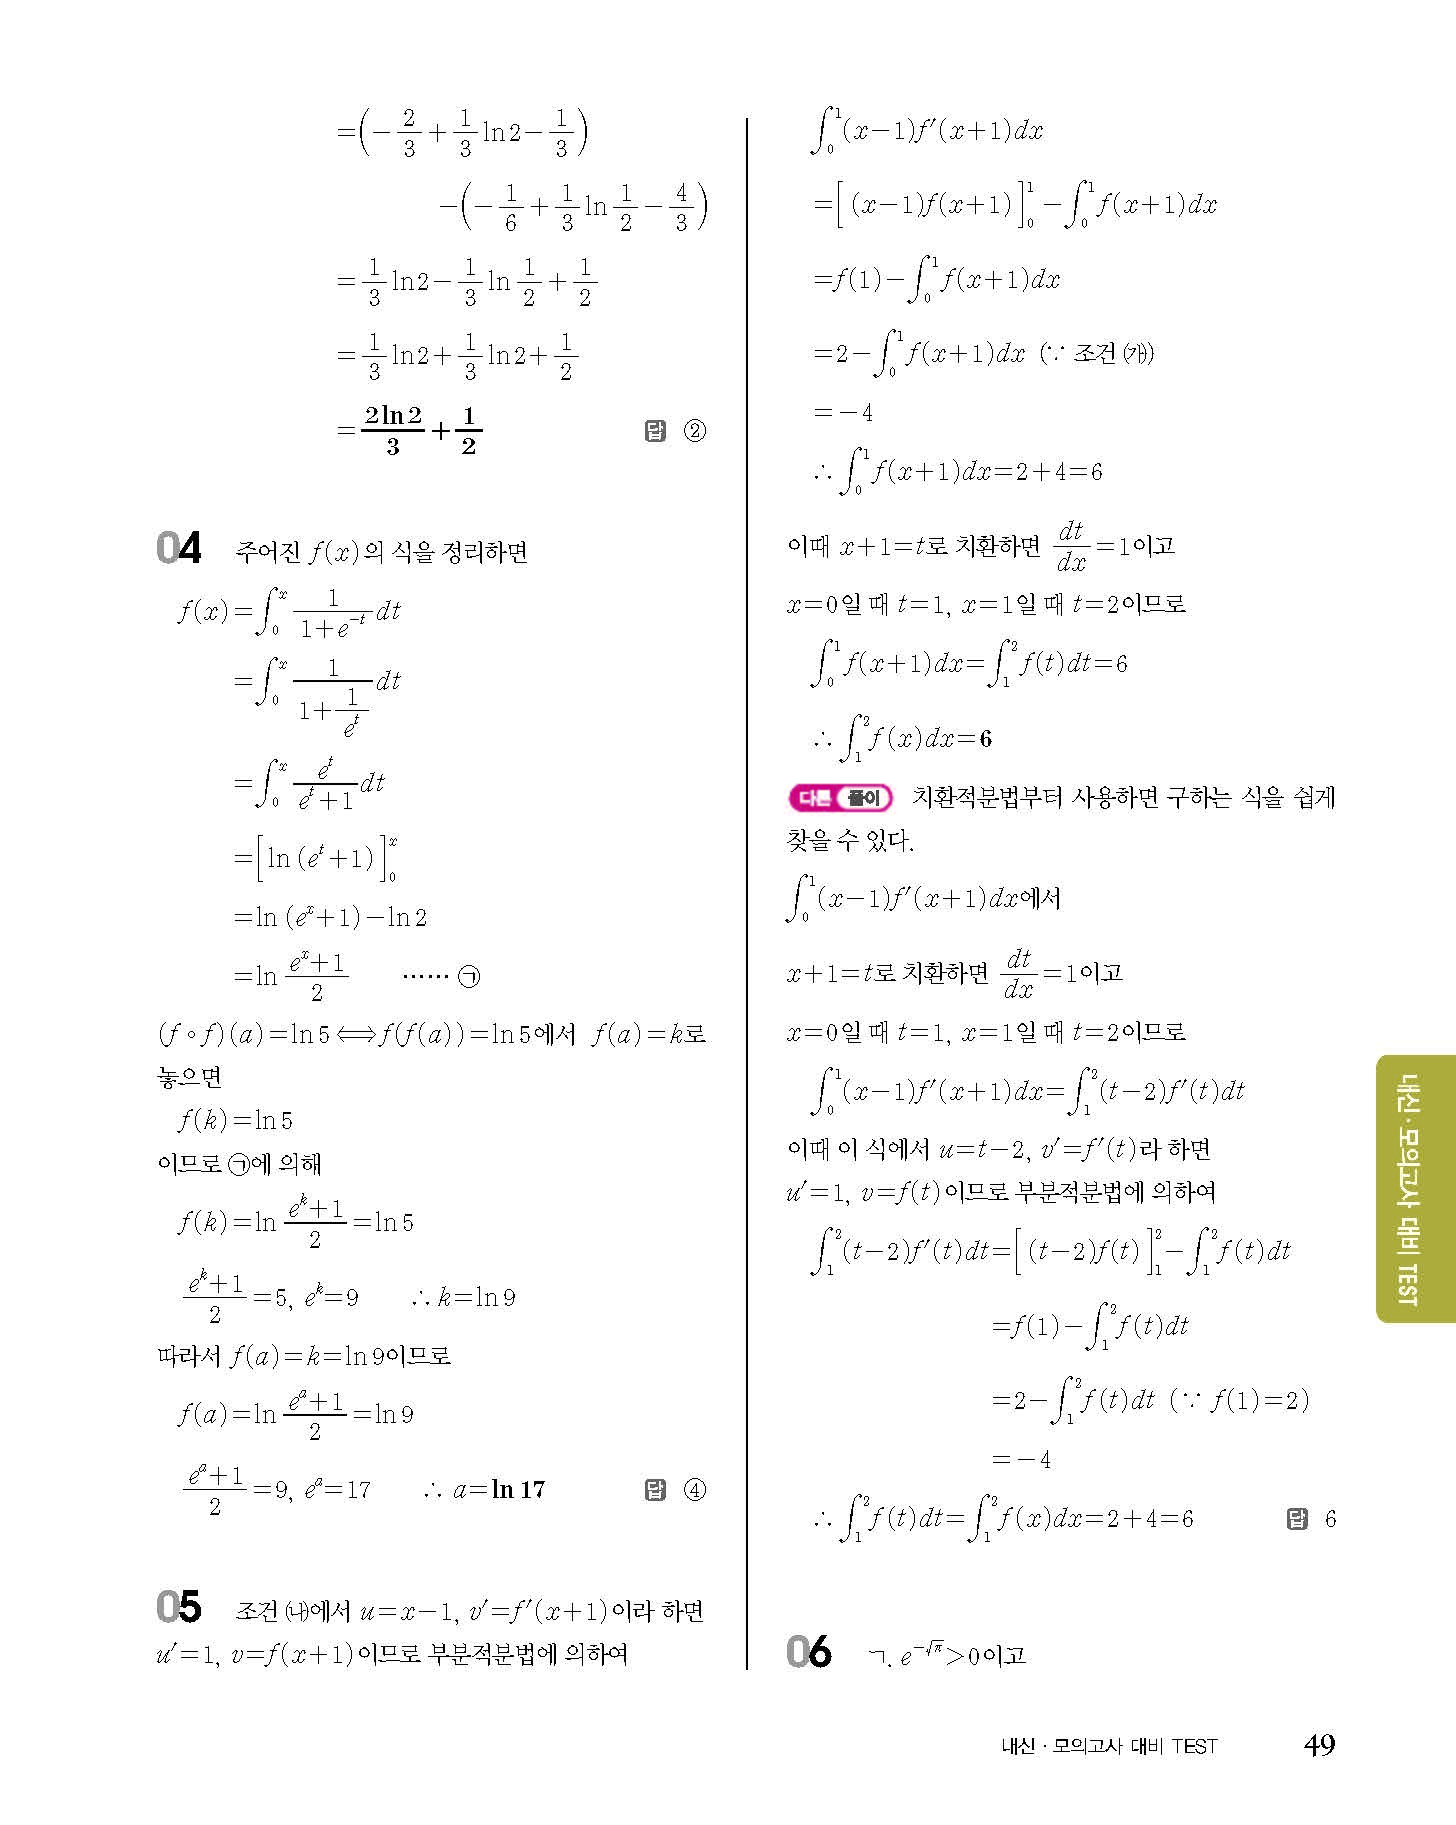 =(-2/3+1/3 ln2-1/3)
-(-1/6+1/3 ln 1/2-4/3)
=1/3 ln2-1/3 ln 1/2+1/2
=1/3 ln2+1/3 ln2+1/2
=2ln2/3+1/2 답 ②
04 주어진 f(x)의 식을 정리하면
f(x)=∫₀ˣ 1/(1+e^(-t)) dt
=∫₀ˣ 1/(1+1/e^t) dt
=∫₀ˣ e^t/(e^t+1) dt
=[ln(e^t+1)]₀ˣ
=ln(e^x+1)-ln2
=ln (e^x+1)/2 ······ ㉠
(f∘f)(a)=ln5⟺f(f(a))=ln5에서 f(a)=k로
놓으면
f(k)=ln5
이므로 ㉠에 의해
f(k)=ln (e^k+1)/2=ln5
(e^k+1)/2=5, e^k=9 ∴ k=ln9
따라서 f(a)=k=ln9이므로
f(a)=ln (e^a+1)/2=ln9
(e^a+1)/2=9, e^a=17 ∴ a=ln17 답 ④
05 조건 ㈏에서 u=x-1, v′=f′(x+1)이라 하면
u′=1, v=f(x+1)이므로 부분적분법에 의하여
∫₀¹(x-1)f′(x+1)dx
=[(x-1)f(x+1)]₀¹-∫₀¹f(x+1)dx
=f(1)-∫₀¹f(x+1)dx
=2-∫₀¹f(x+1)dx (∵ 조건 ㈎)
=-4
∴ ∫₀¹f(x+1)dx=2+4=6
이때 x+1=t로 치환하면 dt/dx=1이고
x=0일 때 t=1, x=1일 때 t=2이므로
∫₀¹f(x+1)dx=∫₁²f(t)dt=6
∴ ∫₁²f(x)dx=6
다른 풀이 치환적분법부터 사용하면 구하는 식을 쉽게
찾을 수 있다.
∫₀¹(x-1)f′(x+1)dx에서
x+1=t로 치환하면 dt/dx=1이고
x=0일 때 t=1, x=1일 때 t=2이므로
∫₀¹(x-1)f′(x+1)dx=∫₁²(t-2)f′(t)dt
이때 이 식에서 u=t-2, v′=f′(t)라 하면
u′=1, v=f(t)이므로 부분적분법에 의하여
∫₁²(t-2)f′(t)dt=[(t-2)f(t)]₁²-∫₁²f(t)dt
=f(1)-∫₁²f(t)dt
=2-∫₁²f(t)dt (∵ f(1)=2)
=-4
∴ ∫₁²f(t)dt=∫₁²f(x)dx=2+4=6 답 6
06 ㄱ. e^(-√π)>0이고
내신·모의고사 대비 TEST
내신·모의고사 대비 TEST 49